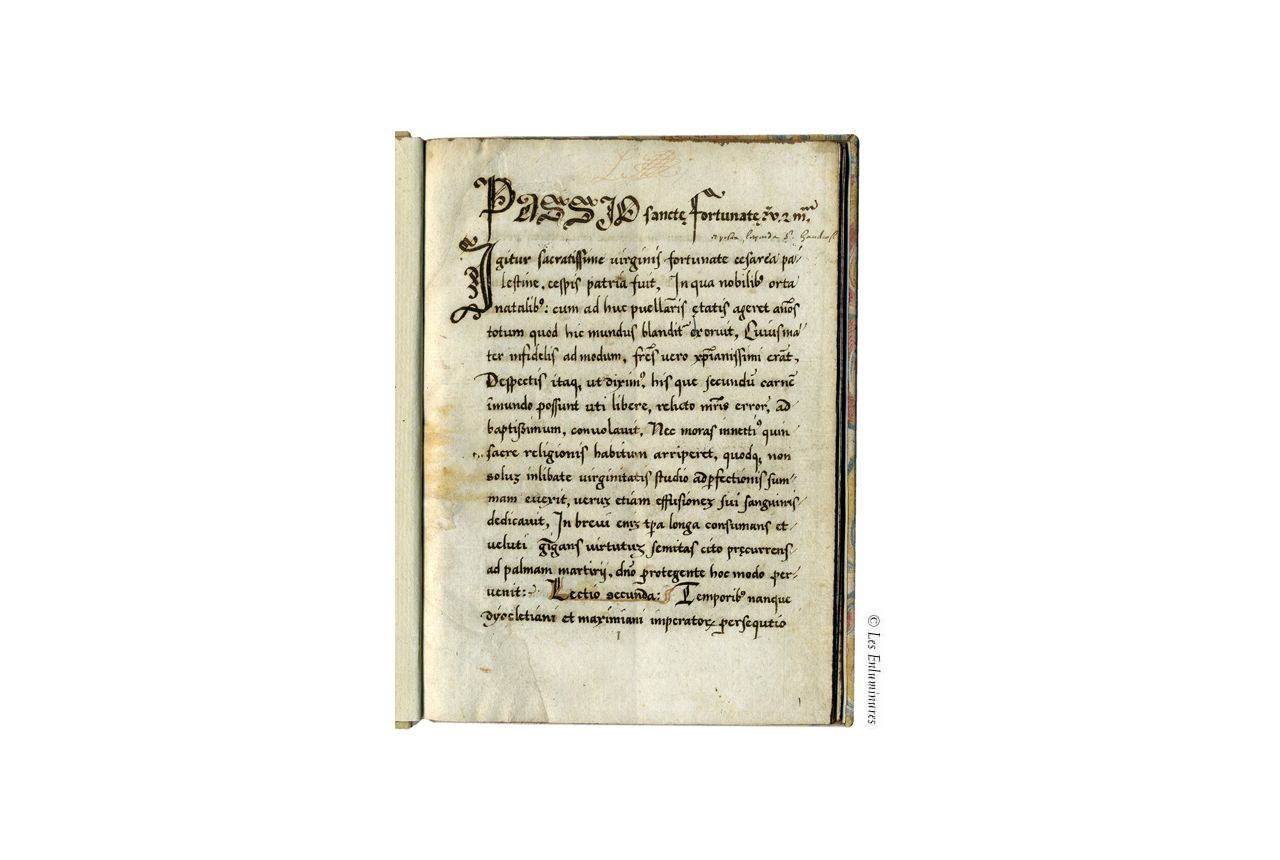 PASSIO sanctę fortunatę v. 2 m
Igitur sacratissime virginis fortunate cesarea pa/
lestine, cespis patria fuit, In qua nobilib⁹ orta
natalib⁹: cum ad huc puellaris ętatis ageret an̄os
totum quod hic mundus blandit᷑ exoruit, Cuius ma/
ter infidelis ad modum, fr̄es vero xp̄ianissimi erāt,
Despectis itaq, ut dixim⁹, his que secundū carnē
īmundo possunt uti libere, relicto mr̄is error, ad
baptissimum, convolavit, Nec moras innetti⁹ quin
sacre religionis habitum arriperet, quodq, non
soluꝫ inlibate virginitatis studio ad ꝑfectionis sum/
mam evexit, veruꝫ etiam effusioneꝫ sui sanguinis
dedicavit, In brevi eniꝫ tp̄a longa consumans et/
veluti gigans virtutuꝫ semitas cito pręcurrens
ad palmam martirij, dn̄o protegente hoc modo per/
venit: Lectio secunda: Temporib⁹ nanque
dyocletiani et maximiani imperatoꝝ persequtio
1
© Les Enluminures